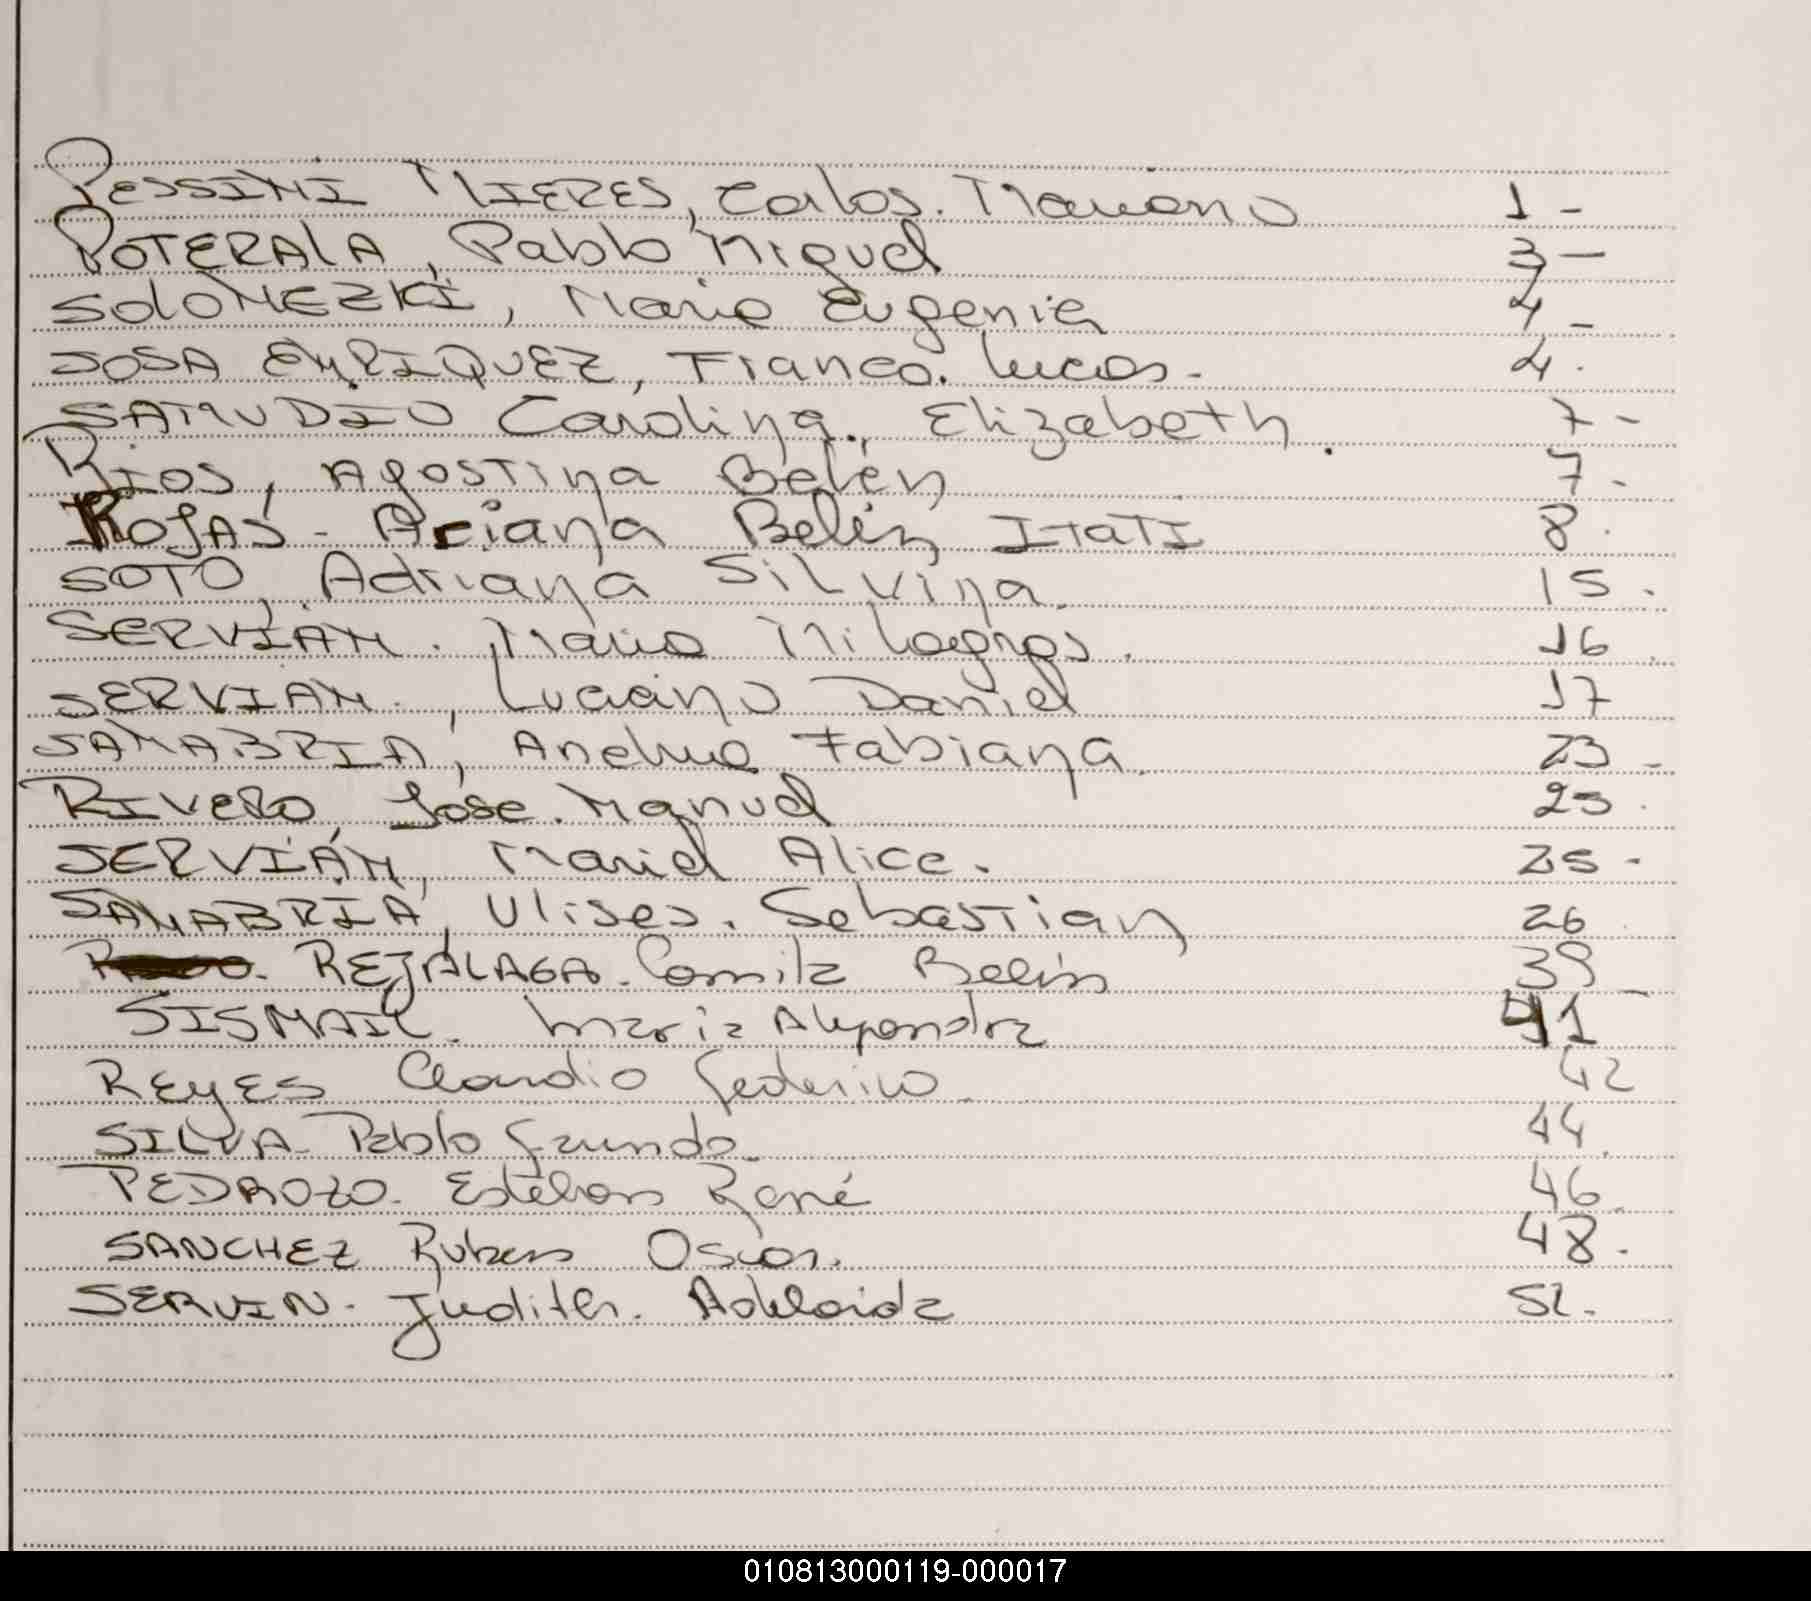 PESSINI MIERES, Carlos. Mariano 1 -
POTERALA, Pablo Miguel 3 -
SOLONEZKI, Maria Eugenia 4 -
SOSA ENRIQUEZ, Franco. Lucas. 4.
SAMUDIO Carolina., Elizabeth. 7 -
RIOS, Agostina Belén 7.
ROJAS - Ariana Belén Itati 8.
SOTO, Adriana Silvina. 15.
SERVIAN. Maria Milagros. 16
SERVIAN., Luciano Daniel 17
SANABRIA, Fabiana. 23 -
RIVERO, José. Manuel 23.
SERVIÁN, Mariel Alice. 25 -
SANABRIA, Ulises. Sebastian 26
REZALAGA. Camila Belén 39 -
SISMAIL. Maria Alejandra 41
REYES Claudio Federico. 42
SILVA. Pablo Facundo. 44.
PEDROZO. Esteban René 46.
SANCHEZ Ruben Oscar. 48.
SERVIN. Judith. Adelaida 52.
010813000119-000017